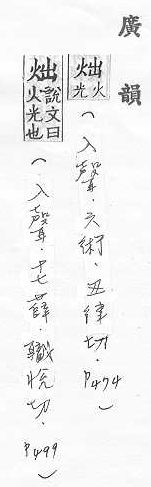 廣韻
炪火光(入聲.六術.丑律切.P474)
炪說文曰火光也(入聲.十七薛.職悅切.P499)